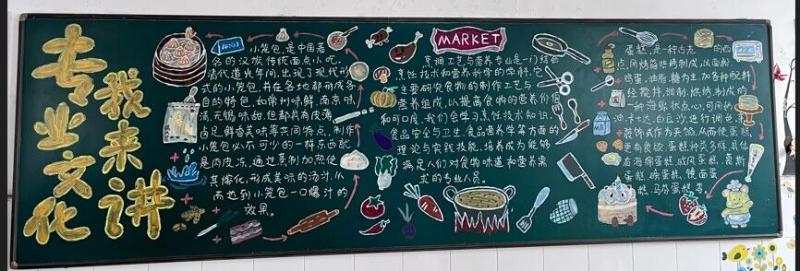 专业文化
我来讲
小笼包,是中国著
名的汉族传统面点小吃,
清代道光年间,出现了现代形
式的小笼包,并在各地都形成各
自的特色,如常州味鲜,南京味
清,无锡味甜,但都具有皮薄
卤足鲜香美味等共同特点,制作
小笼包必不可少的一样东西就
是肉皮冻,通过蒸制加热使
其熔化,形成美味的汤汁,从
而达到小笼包一口爆汁的
效果。
MARKET
烹调工艺与营养专业是一门结合
烹饪技术和营养科学的学科,它
主要研究食物的制作工艺与
营养组成,以提高食物的营养价值
和可口度,我们会学习烹饪技术知识,
食品安全与卫生,食品营养学等方面的
理论与实践技能,培养成为能够
满足人们对食物味道和营养需
求的专业人员。
蛋糕,是一种古老的西
点,用烤箱烘烤制成,以面粉
鸡蛋,油脂,糖为主,加各种配料
经搅拌,调制,烘烤,制成的
一种
点心,可用奶
油,
进行
装饰
蛋糕,
蛋糕种类多样,具体
有海绵蛋糕,戚风蛋糕,慕斯
蛋糕,
蛋糕,